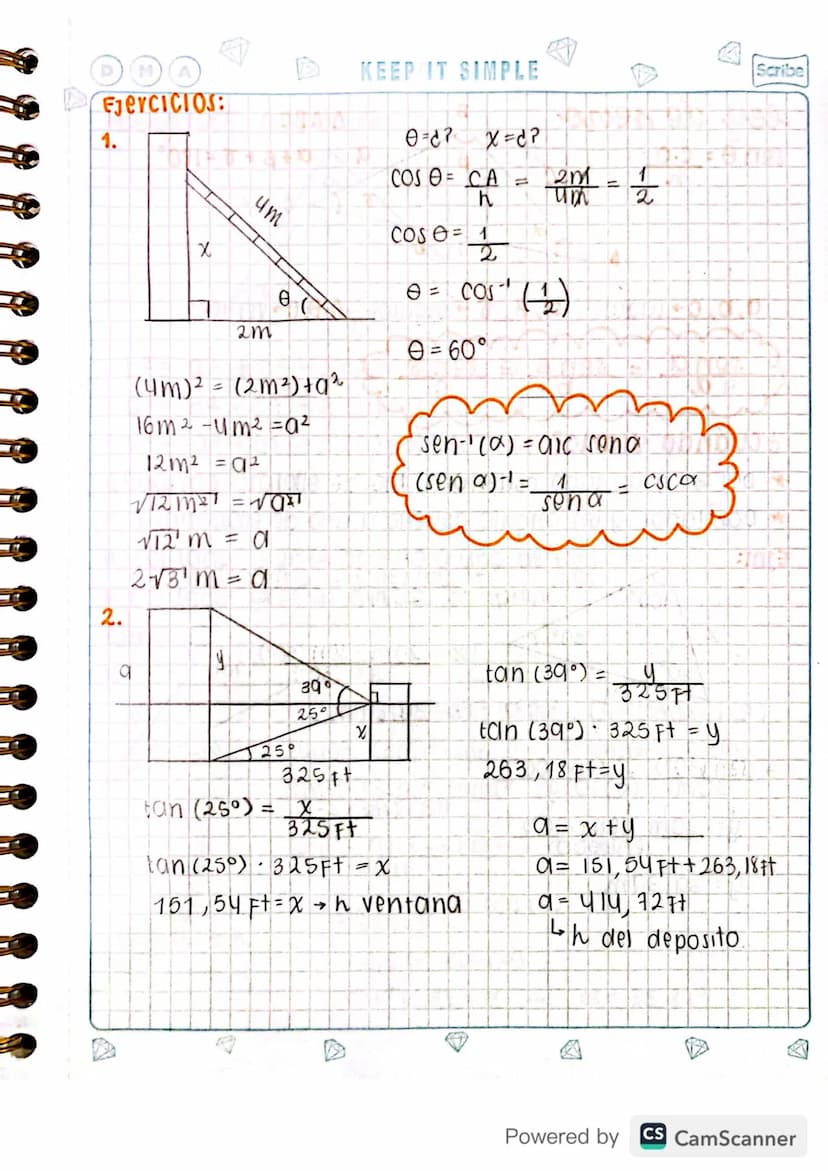 D M A
KEEP IT SIMPLE
Scribe
Ejercicios:
1.
4m
x
θ
2m
θ=¿? x=¿?
cos θ = CA/h = 2m/4m = 1/2
cos θ = 1/2
θ = cos⁻¹ (1/2)
θ = 60°
(4m)² = (2m²)+a²
16m² -4m² =a²
12m² =a²
√12m² = √a²
√12 m = a
2√3 m = a
sen⁻¹(α) = arc senα
(sen α)⁻¹ = 1/sen α = cscα
2.
a
y
39°
25°
x
25°
325ft
tan (25°) = x/325Ft
tan(25°) · 325Ft = x
151,54 Ft = x → h ventana
tan (39°) = y/325Ft
tan (39°) · 325Ft = y
263,18 Ft=y
a = x+y
a= 151,54Ft+263,18ft
a= 414,72ft
↳h del deposito
Powered by CS CamScanner